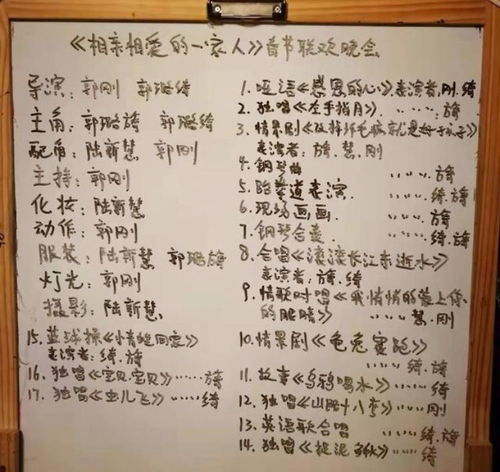 《相亲相爱的一家人》春节联欢晚会
导演：郭刚 郭璐绮
主角：郭璐旖 郭璐绮
配角：陆新慧 郭刚
主持：郭刚
化妆：陆新慧
动作：郭刚
服装：陆新慧 郭璐旖
灯光：郭刚
摄影：陆新慧
1. 哑语《感恩的心》表演者：刚.绮
2. 独唱《左手指月》. ......旖
3. 情景剧《改掉坏毛病就是好孩子》
表演者：旖.慧.刚
4. 钢琴曲 ......旖
5. 跆拳道表演. ......绮.旖
6. 现场画画. ......旖
7. 钢琴合奏. ......绮.旖
8. 合唱《滚滚长江东逝水》
表演者：旖.绮
9. 情歌对唱《我悄悄的蒙上你
的眼睛》 ......慧.刚
10. 情景剧《龟兔赛跑》
......绮.旖
11. 故事《乌鸦喝水》......绮
12. 独唱《山路十八弯》......刚
13. 英语歌合唱 ......绮.旖
14. 独唱《捉泥鳅》......绮
15. 篮球操《情绝同家》
表演者：绮.旖
16. 独唱《宝贝宝贝》......旖
17. 独唱《虫儿飞》......绮